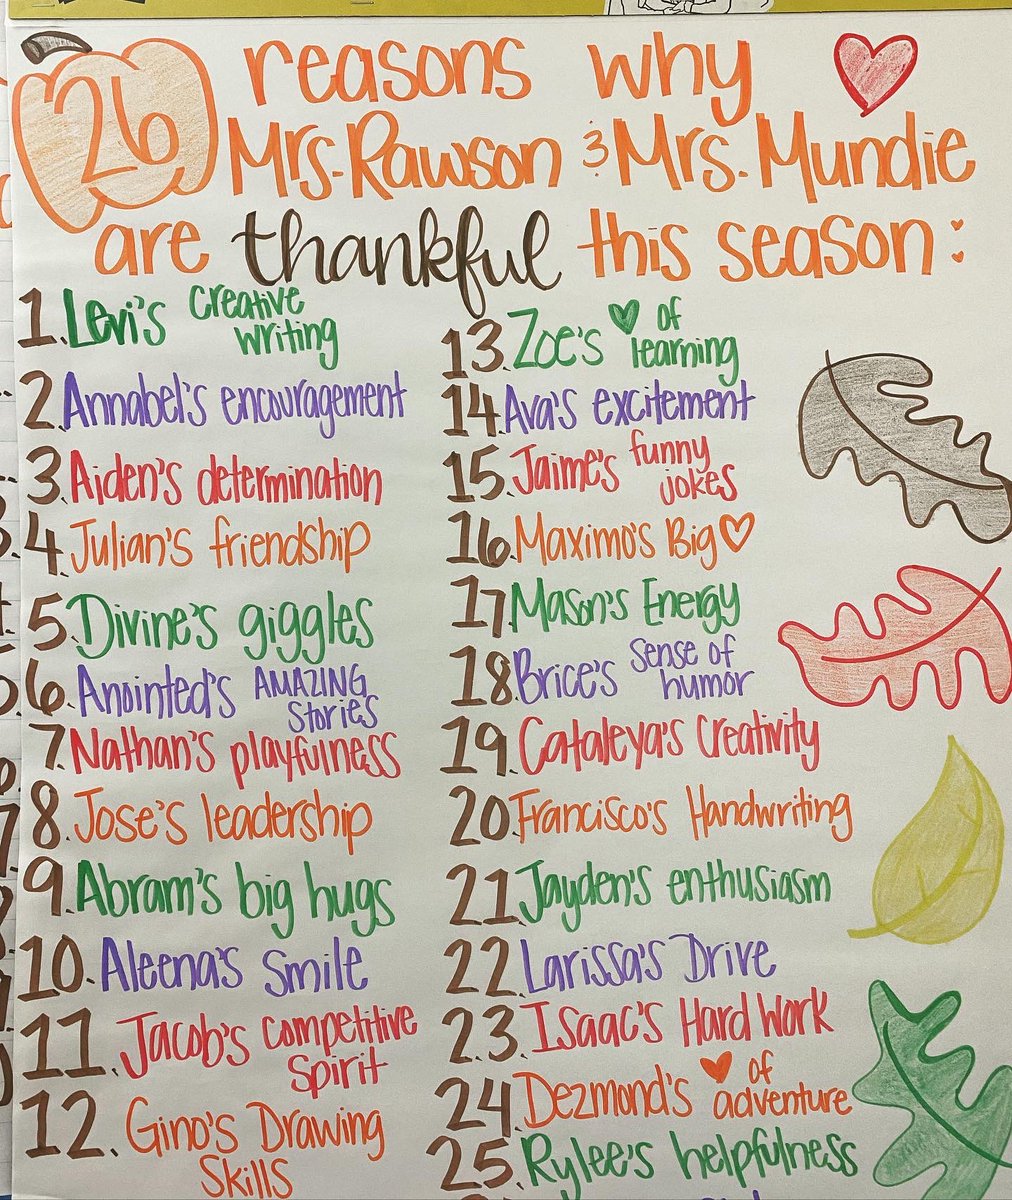 26 reasons why
Mrs. Rawson & Mrs. Mundie
are thankful this season:
1. Levi's creative
writing
2. Annabel's encouragement
3. Aiden's determination
4. Julian's friendship
5. Divine's giggles
6. Anointed's AMAZING
stories
7. Nathan's playfulness
8. Jose's leadership
9. Abram's big hugs
10. Aleena's smile
11. Jacob's competitive
spirit
12. Gino's Drawing
Skills
13. Zoe's ♥ of
learning
14. Ava's excitement
15. Jaime's funny
jokes
16. Maximo's Big ♡
17. Mason's Energy
18. Brice's sense of
humor
19. Cataleya's Creativity
20. Francisco's Handwriting
21. Jayden's enthusiasm
22. Larissa's Drive
23. Isaac's Hard Work
24. Dezmond's ♥ of
adventure
25. Rylee's helpfulness